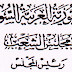 الجمهورية العربية السورية
مجلس الشعب
رئيس المجلس